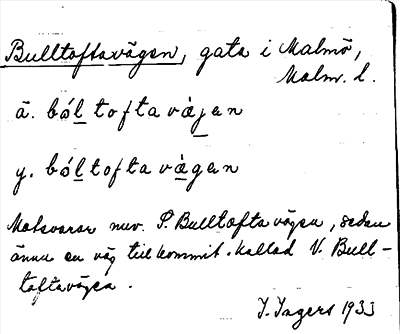 Bulltoftavägen, gata i Malmö,
Malm. l.
ä. bóltoftavàjen
y. bóltoftavàgen
Motsvarar nuv. S. Bulltofta vägen, sedan
ännu en väg tillkommit. kallad V. Bull-
toftavägen.
I. Ingers 1933